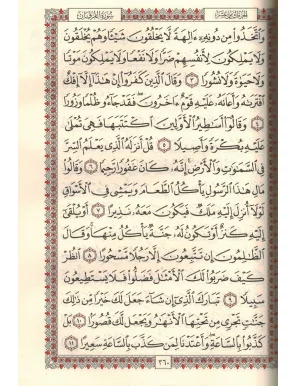 الجزء الثامن عشر سورة الفرقان
وَٱتَّخَذُوا۟ مِن دُونِهِۦٓ ءَالِهَةً لَّا يَخْلُقُونَ شَيْـًٔا وَهُمْ يُخْلَقُونَ
وَلَا يَمْلِكُونَ لِأَنفُسِهِمْ ضَرًّا وَلَا نَفْعًا وَلَا يَمْلِكُونَ مَوْتًا
وَلَا حَيَوٰةً وَلَا نُشُورًا ٣ وَقَالَ ٱلَّذِينَ كَفَرُوٓا۟ إِنْ هَـٰذَآ إِلَّآ إِفْكٌ
ٱفْتَرَىٰهُ وَأَعَانَهُۥ عَلَيْهِ قَوْمٌ ءَاخَرُونَ ۖ فَقَدْ جَآءُو ظُلْمًا وَزُورًا
٤ وَقَالُوٓا۟ أَسَـٰطِيرُ ٱلْأَوَّلِينَ ٱكْتَتَبَهَا فَهِىَ تُمْلَىٰ
عَلَيْهِ بُكْرَةً وَأَصِيلًا ٥ قُلْ أَنزَلَهُ ٱلَّذِى يَعْلَمُ ٱلسِّرَّ
فِى ٱلسَّمَـٰوَٰتِ وَٱلْأَرْضِ ۚ إِنَّهُۥ كَانَ غَفُورًا رَّحِيمًا ٦ وَقَالُوا۟
مَالِ هَـٰذَا ٱلرَّسُولِ يَأْكُلُ ٱلطَّعَامَ وَيَمْشِى فِى ٱلْأَسْوَاقِ ۙ
لَوْلَآ أُنزِلَ إِلَيْهِ مَلَكٌ فَيَكُونَ مَعَهُۥ نَذِيرًا ٧ أَوْ يُلْقَىٰٓ
إِلَيْهِ كَنزٌ أَوْ تَكُونُ لَهُۥ جَنَّةٌ يَأْكُلُ مِنْهَا ۚ وَقَالَ
ٱلظَّـٰلِمُونَ إِن تَتَّبِعُونَ إِلَّا رَجُلًا مَّسْحُورًا ٨ ٱنظُرْ
كَيْفَ ضَرَبُوا۟ لَكَ ٱلْأَمْثَـٰلَ فَضَلُّوا۟ فَلَا يَسْتَطِيعُونَ
سَبِيلًا ٩ تَبَارَكَ ٱلَّذِىٓ إِن شَآءَ جَعَلَ لَكَ خَيْرًا مِّن ذَٰلِكَ
جَنَّـٰتٍ تَجْرِى مِن تَحْتِهَا ٱلْأَنْهَـٰرُ وَيَجْعَل لَّكَ قُصُورًۢا ١٠ بَلْ
كَذَّبُوا۟ بِٱلسَّاعَةِ ۖ وَأَعْتَدْنَا لِمَن كَذَّبَ بِٱلسَّاعَةِ سَعِيرًا ١١
٣٦٠